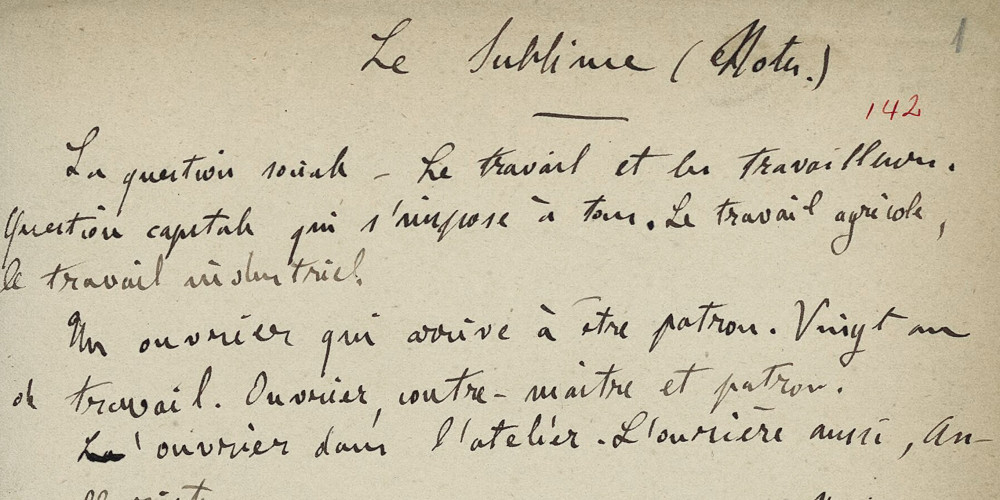 1
Le Sublime (Notes.)
142
La question sociale – Le travail et les travailleurs.
Question capitale qui s'impose à tous. Le travail agricole,
le travail industriel.
Un ouvrier qui arrive à être patron. Vingt ans
de travail. Ouvrier, contre-maître et patron.
L'ouvrier dans l'atelier. L'ouvrière aussi, An-